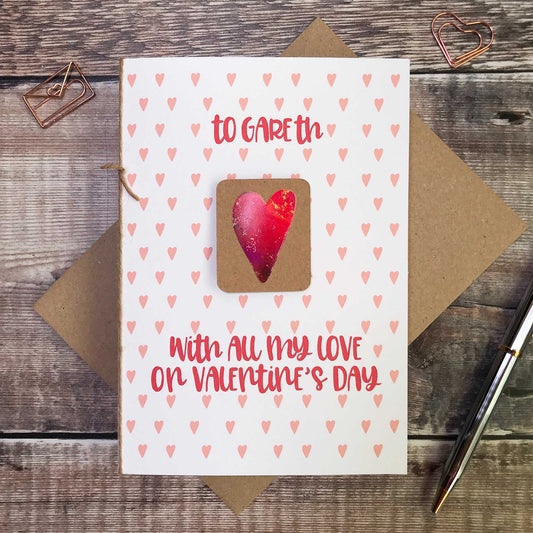 to GARetH
With ALL my LOVE
on VALentine's DAY